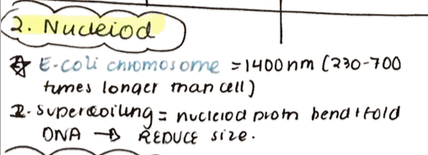 2. Nucleiod
E-coli chromosome = 1400 nm (230-700
times longer than cell)
2. Supercoiling = nucleiod protn bend + fold
DNA → REDUCE size.